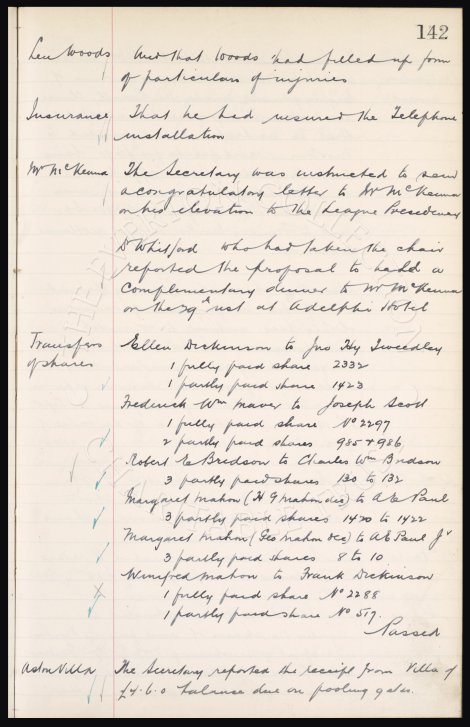 142
Len Woods And that Woods had filled up form
of particulars of injuries
Insurance That he had insured the Telephone
installation
Mr McKenna The Secretary was instructed to send
a congratulatory letter to Mr McKenna
on his elevation to the League Presidency
Dr Whitford who had taken the chair
reported the proposal to hold a
Complimentary dinner to Mr McKenna
on the 29th inst at Adelphi Hotel
Transfers Ellen Dickinson to Jno Hy Tweedley
of shares 1 fully paid share 2332
1 partly paid share 1423
Frederick Wm Maver to Joseph Scott
1 fully paid share No 2297
2 partly paid shares 985 & 986
Robert E Bridson to Charles Wm Bridson
3 partly paid shares 130 to 132
Margaret Mahon (H G Mahon dec) to A E Paul
3 partly paid shares 1420 to 1422
Margaret Mahon (Geo Mahon dec) to A E Paul Jr
3 partly paid shares 8 to 10
Winifred Mahon to Frank Dickinson
1 fully paid share No 2288
1 partly paid share No 517.
Passed
Aston Villa The Secretary reported the receipt from Villa of
£4.6.0 balance due on pooling gates.